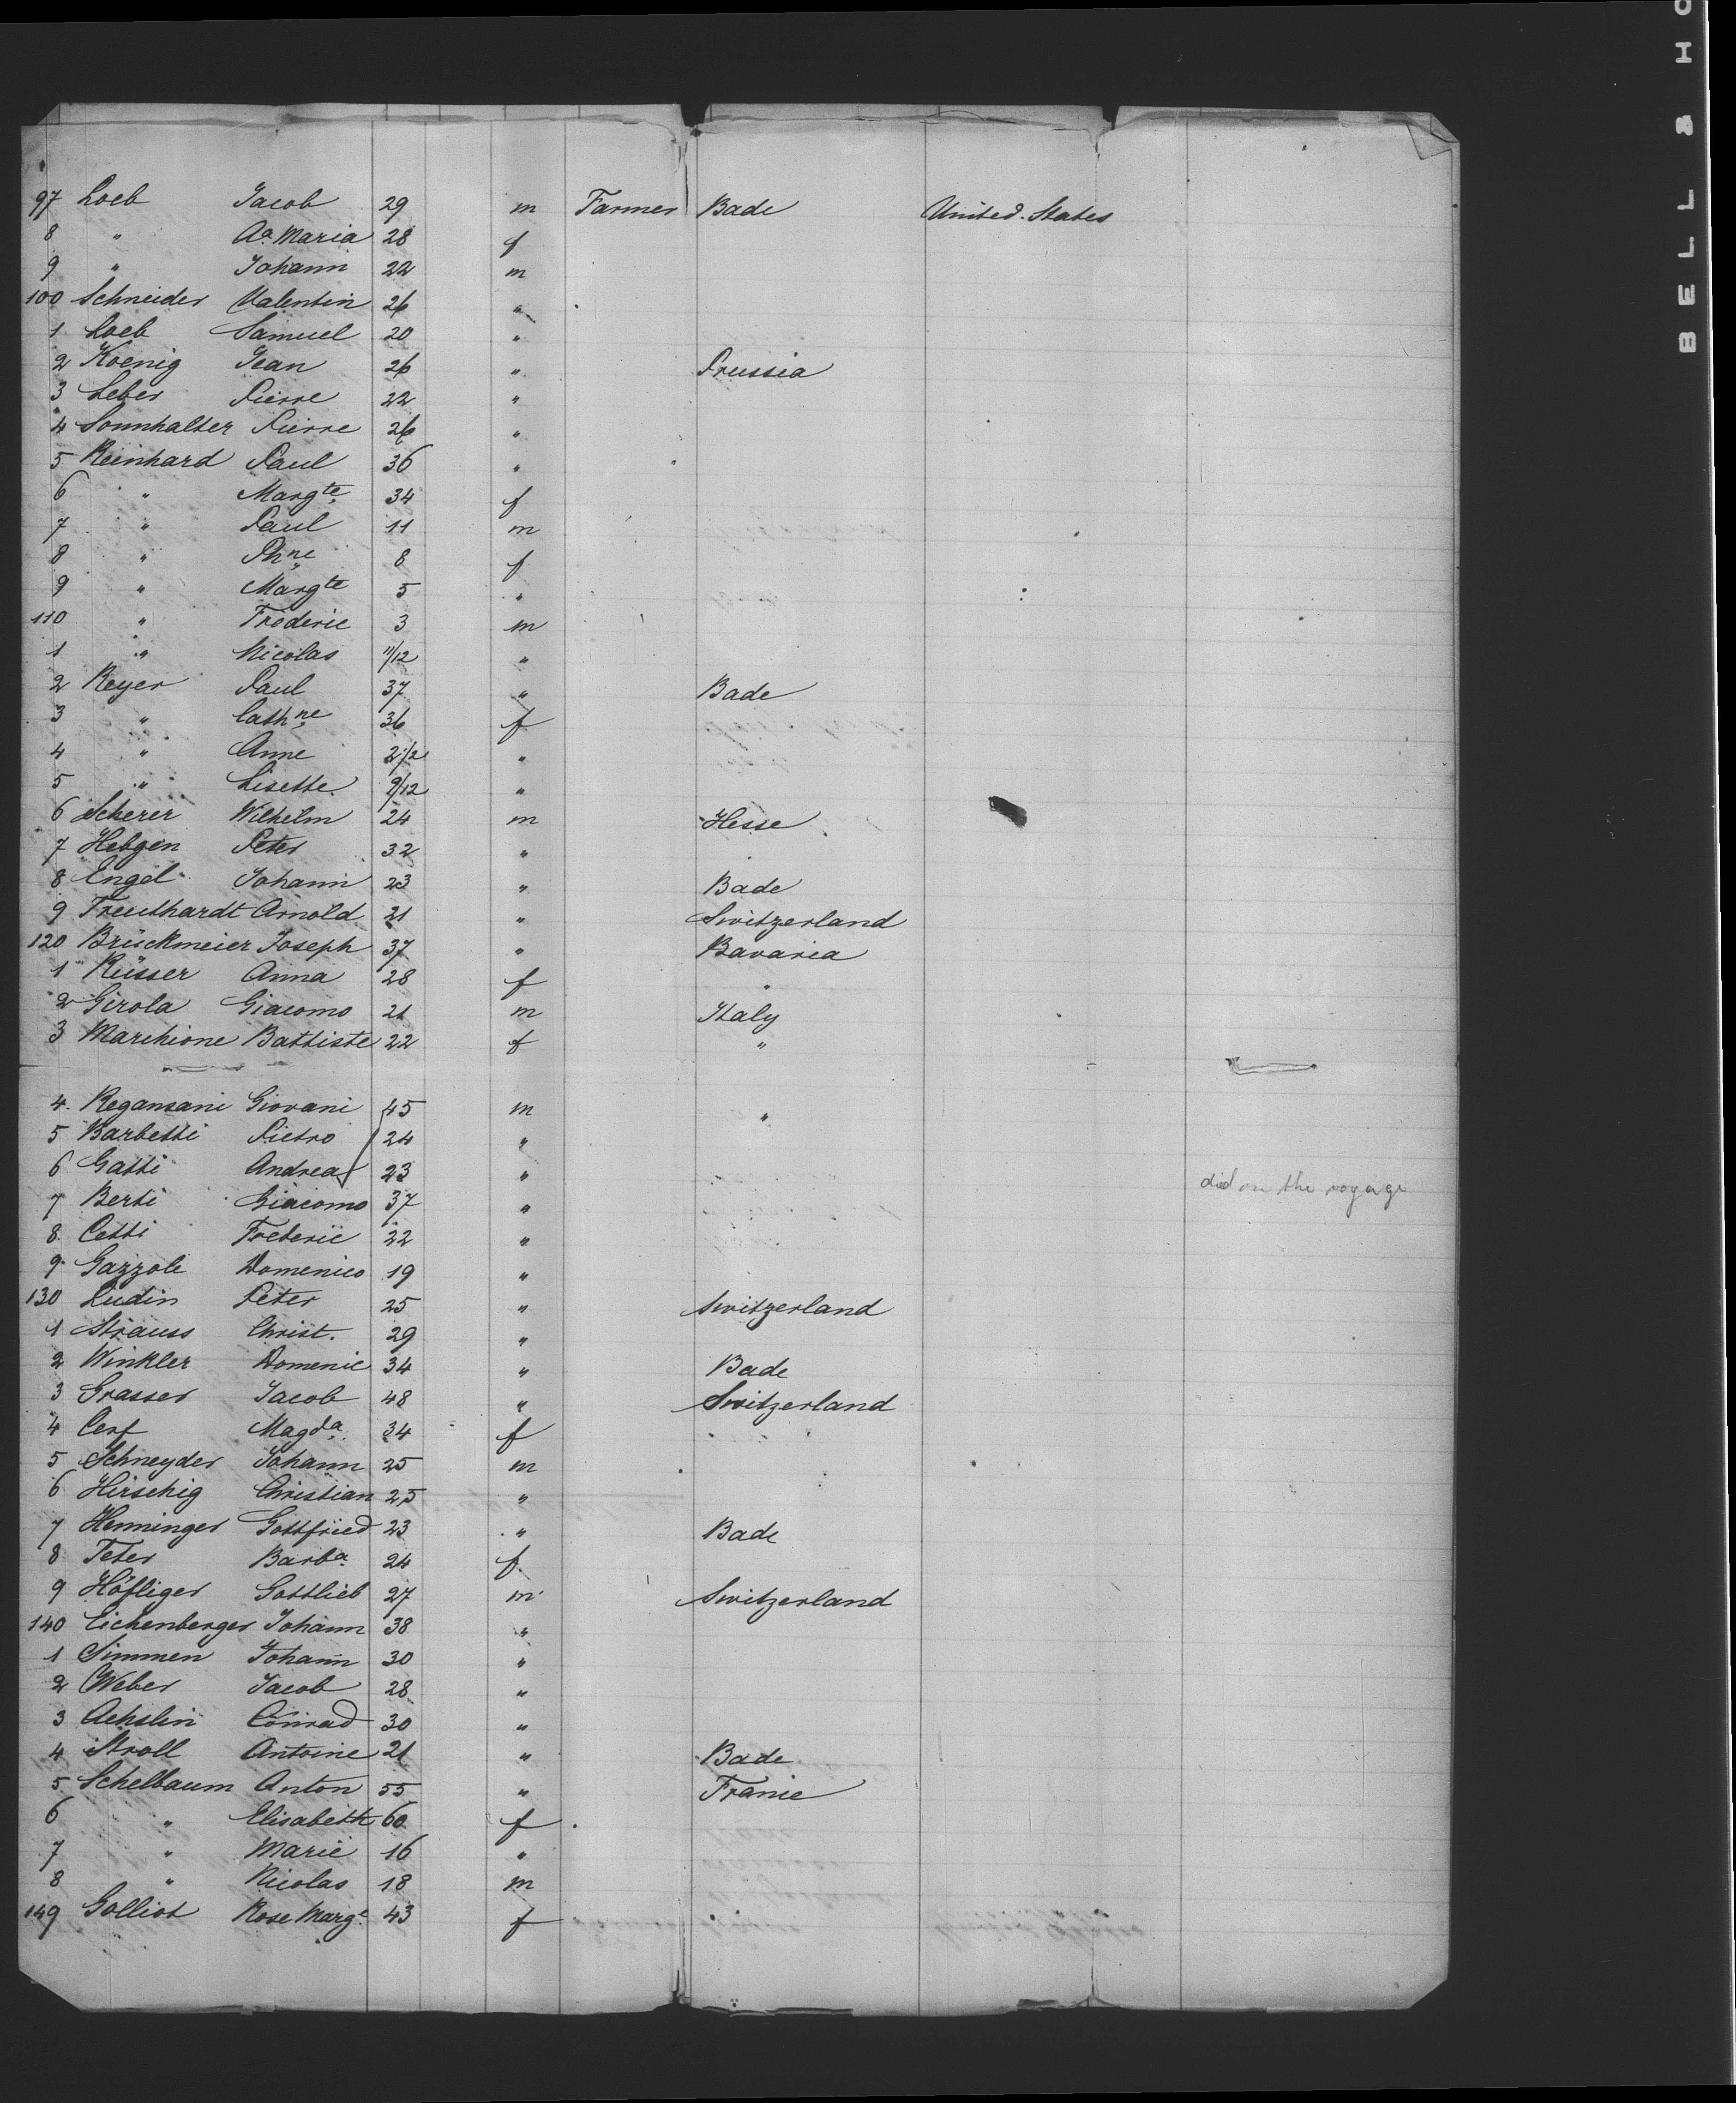 97 Loeb Jacob 29 m Farmer Bade United States
8 " Aa Maria 28 f
9 " Johann 22 m
100 Schneider Valentin 26 "
1 Loeb Samuel 20 "
2 Koenig Jean 26 " Prussia
3 Leber Pierre 22 "
4 Sonnhalter Pierre 26 "
5 Reinhard Paul 36 "
6 " Margte 34 f
7 " Paul 11 m
8 " Phne 8 f
9 " Margte 5 "
110 " Fréderic 3 m
1 " Nicolas 11/12 "
2 Reyer Paul 37 " Bade
3 " Cathne 36 f
4 " Anne 2 1/2 "
5 " Lisette 9/12 "
6 Scherer Wilhelm 24 m Hesse
7 Hebgen Peter 32 "
8 Engel Johann 23 " Bade
9 Treuthardt Arnold 21 " Switzerland
120 Brückmeier Joseph 37 " Bavaria
1 Rüsser Anna 28 f "
2 Girola Giacomo 21 m Italy
3 Marchione Battiste 22 f "
4 Regansani Giovani 45 m "
5 Barbetti Pietro 24 "
6 Gatti Andrea 23 "
7 Berti Giacomo 37 " did on the voyage
8 Cetti Frederic 22 "
9 Gazzole Domenico 19 "
130 Ludin Peter 25 " Switzerland
1 Strauss Christ. 29 "
2 Winkler Domenic 34 " Bade
3 Grasser Jacob 48 " Switzerland
4 Cerf Magda 34 f
5 Schneyder Johann 25 m
6 Hirschig Christian 25 "
7 Henninger Gottfried 23 " Bade
8 Feter Barba 24 f
9 Höfliger Gottlieb 27 m Switzerland
140 Eichenberger Johann 38 "
1 Simmen Johann 30 "
2 Weber Jacob 28 "
3 Achslin Conrad 30 "
4 Stroll Antoine 21 " Bade
5 Schelbaum Anton 55 " France
6 " Elisabeth 60 f
7 " Marie 16 "
8 " Nicolas 18 m
149 Golliot Rose Marge 43 f
BELL & HO